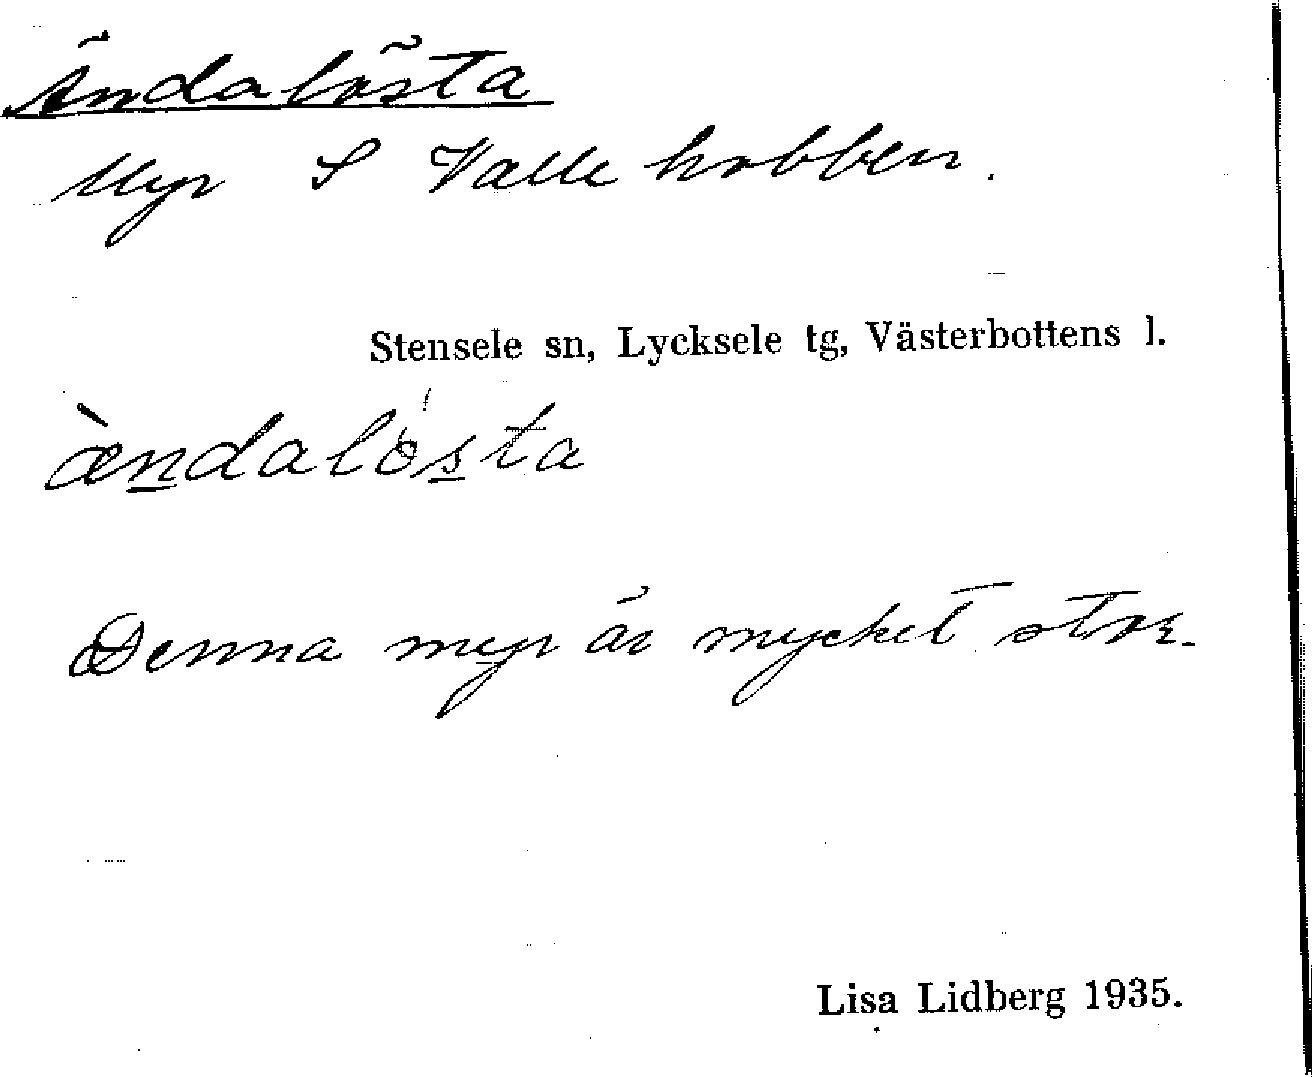 Ändalösta
Myr S Vallekobben.
Stensele sn, Lycksele tg, Västerbottens l.
æ̀n̲daló̲s̲ta
Denna myr är mycket stor.
Lisa Lidberg 1935.